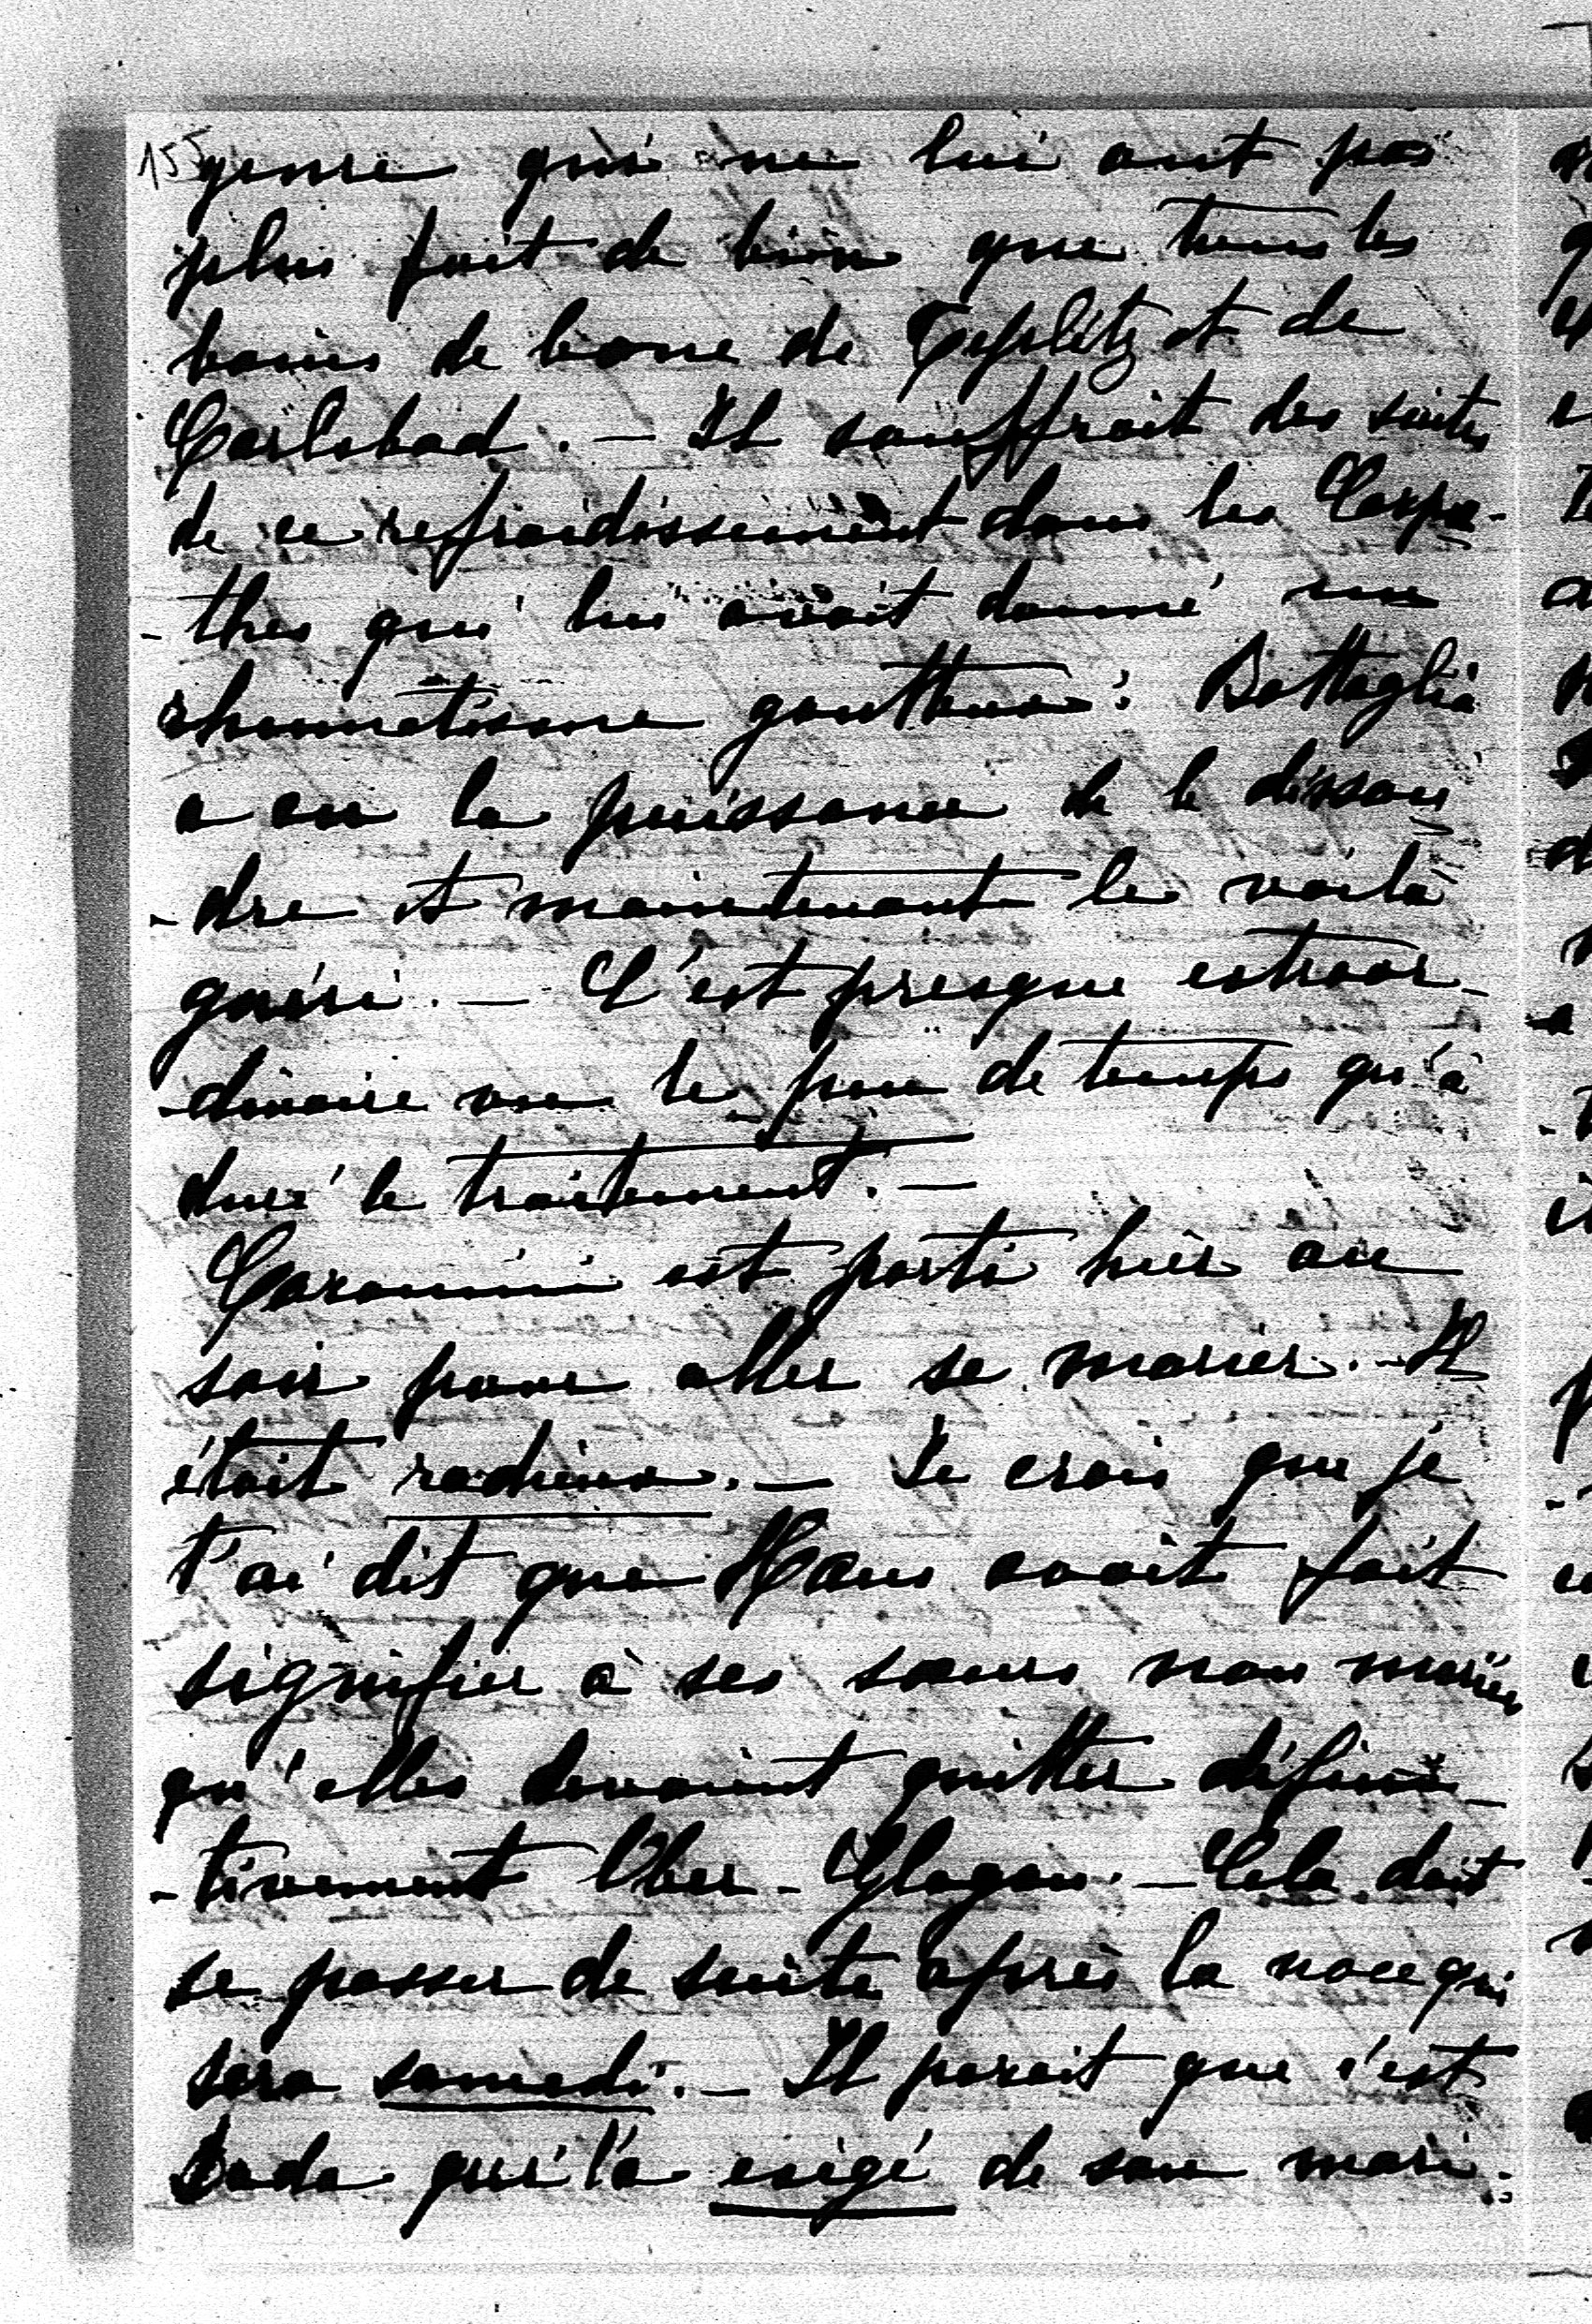 155
genre qui ne lui ont pas
plus fait de bien que tous les
bains de boue de Teplitz et de
Carlsbad. — Il souffrait des suites
de ce refroidissement dans les Carpa-
-thes qui lui avait donné un
rhumatisme goutteux : Battaglia
a eu la puissance de le dissou
-dre et maintenant le voilà
guéri. — C'est presque extraor-
-dinaire vu le peu de temps qu'a
duré le traitement. —
Coronini est parti hier au
soir pour aller se marier. - Il
était radieux. — Je crois que je
t'ai dit que Hans avait fait
signifier à ses sœurs non mariées
qu'elles devaient quitter défini-
-tivement Ober-Glogau. — Cela doit
se passer de suite après la noce qui
sera samedi. — Il parait que c'est
qui l'a exigé de son mari.